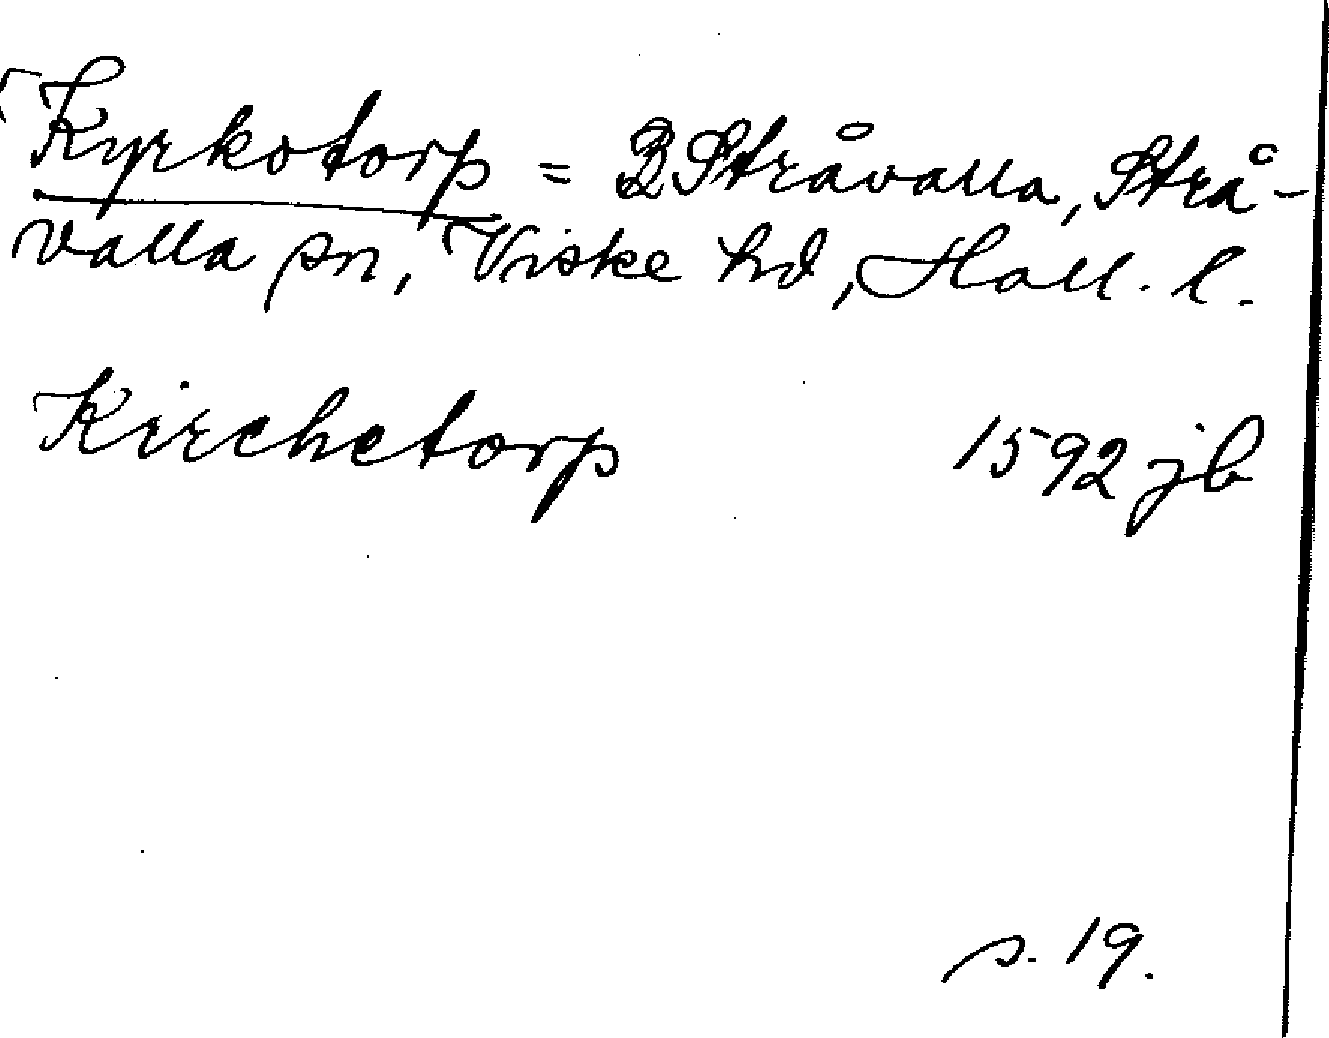 Kyrkotorp = B Stråvalla, Strå-
valla sn, Viske hd, Hall. l.
Kirchetorp 1592 jb
s. 19.